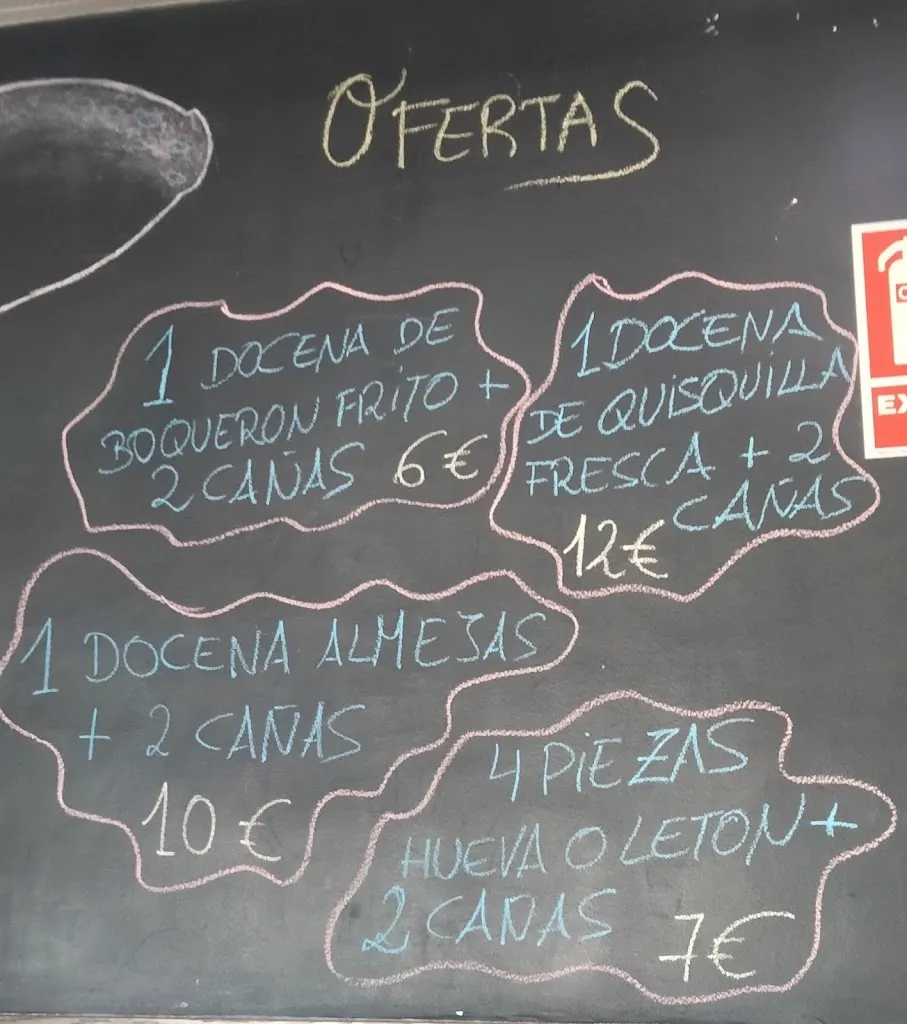 OFERTAS
1 DOCENA DE
BOQUERON FRITO +
2 CAÑAS 6€
1 DOCENA
DE QUISQUILLA
FRESCA + 2
CAÑAS
12€
1 DOCENA ALMEJAS
+ 2 CAÑAS
10 €
4 PIEZAS
HUEVA O LETON +
2 CAÑAS 7€
EX